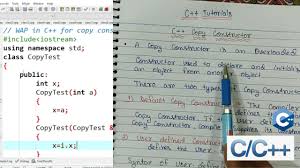 // WAP in C++ for copy const
#include<iostream>
using namespace std;
class CopyTest
{
public:
int x;
CopyTest(int a)
{
x=a;
}
CopyTest(CopyTest &
{
x=i.x;
C++ Tutorials
C++ Copy Constructor
A Copy Constructor is an Overloaded
Constructor used to declare and initialize
an object from another object
There are two types of Copy Const
1) Default Copy Constructor
defines the
2) User defined Constructor
defines
Syntax of User defin
C/C++